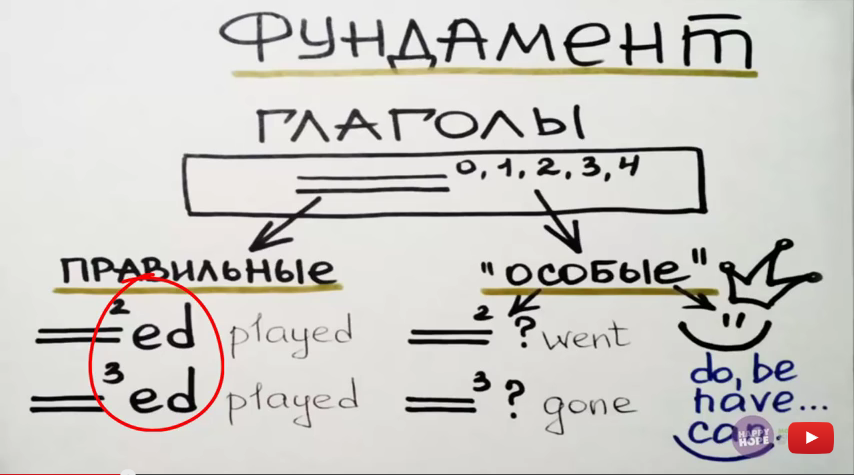 ФУНДАМЕНТ
ГЛАГОЛЫ
0, 1, 2, 3, 4
ПРАВИЛЬНЫЕ
2 ed played
3 ed played
"ОСОБЫЕ"
2 ? went
3 ? gone
do, be
have...
can.
HAPPY
HOPE